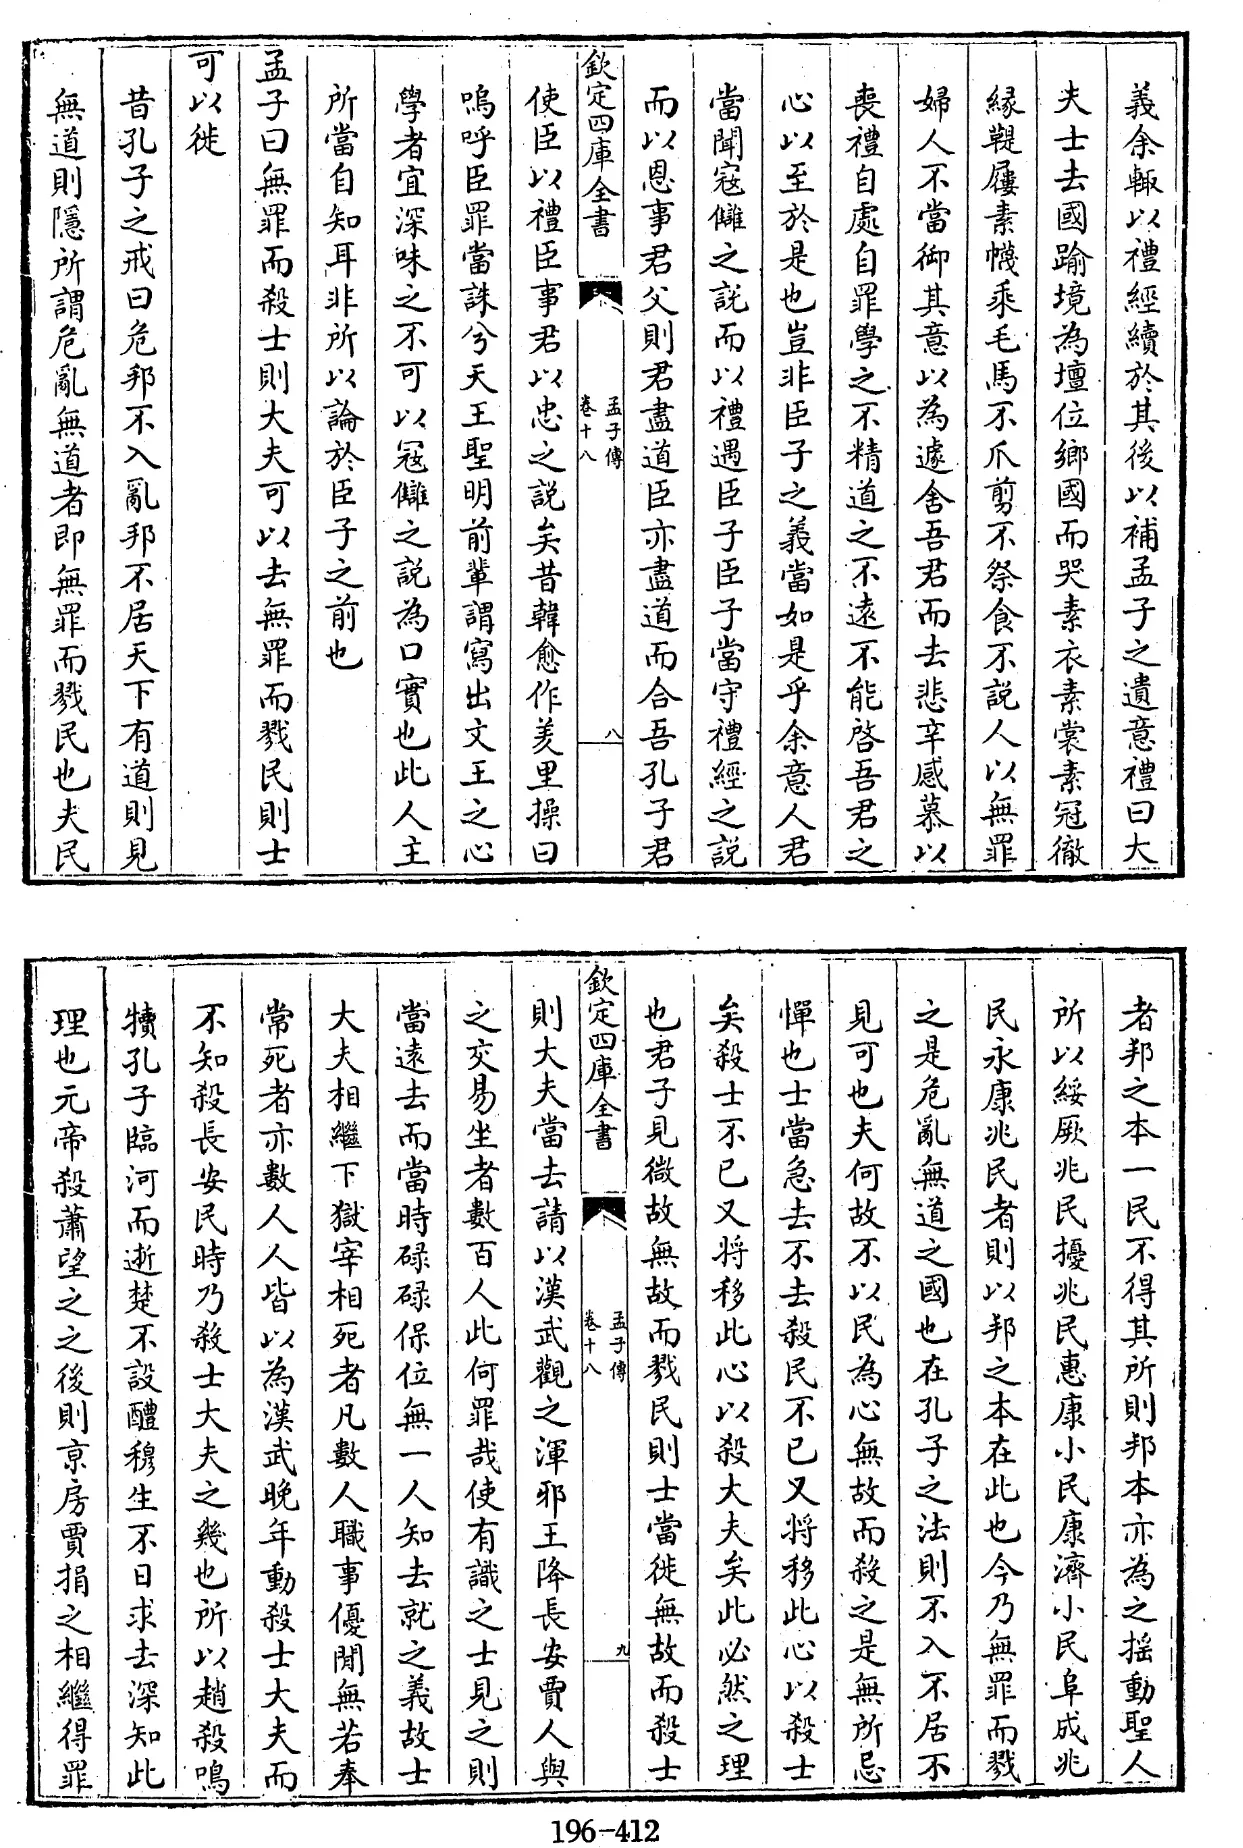 義余輙以禮經續於其後以補孟子之遺意禮曰大
夫士去國踰境為壇位鄉國而哭素衣素裳素冠徹
緣鞮屨素幭乘毛馬不爪剪不祭食不說人以無罪
婦人不當御其意以為遽舍吾君而去悲辛感慕以
喪禮自處自罪學之不精道之不遠不能啓吾君之
心以至於是也豈非臣子之義當如是乎余意人君
當聞寇讎之説而以禮遇臣子臣子當守禮經之説
而以恩事君父則君盡道臣亦盡道而合吾孔子君
欽定四庫全書
孟子傳
卷十八
八
使臣以禮臣事君以忠之説矣昔韓愈作羑里操曰
嗚呼臣罪當誅兮天王聖明前輩謂寫出文王之心
學者宜深味之不可以寇讎之説為口實也此人主
所當自知耳非所以論於臣子之前也
孟子曰無罪而殺士則大夫可以去無罪而戮民則士
可以徙
昔孔子之戒曰危邦不入亂邦不居天下有道則見
無道則隱所謂危亂無道者即無罪而戮民也夫民
者邦之本一民不得其所則邦本亦為之揺動聖人
所以綏厥兆民擾兆民惠康小民康濟小民阜成兆
民永康兆民者則以邦之本在此也今乃無罪而戮
之是危亂無道之國也在孔子之法則不入不居不
見可也夫何故不以民為心無故而殺之是無所忌
憚也士當急去不去殺民不已又將移此心以殺士
矣殺士不已又將移此心以殺大夫矣此必然之理
也君子見微故無故而戮民則士當徙無故而殺士
欽定四庫全書
孟子傳
卷十八
九
則大夫當去請以漢武觀之渾邪王降長安賈人與
之交易坐者數百人此何罪哉使有識之士見之則
當遠去而當時碌碌保位無一人知去就之義故士
大夫相繼下獄宰相死者凡數人職事優閒無若奉
常死者亦數人人皆以為漢武晚年動殺士大夫而
不知殺長安民時乃殺士大夫之幾也所以趙殺鳴
犢孔子臨河而逝楚不設醴穆生不日求去深知此
理也元帝殺蕭望之之後則京房賈捐之相繼得罪
196-412